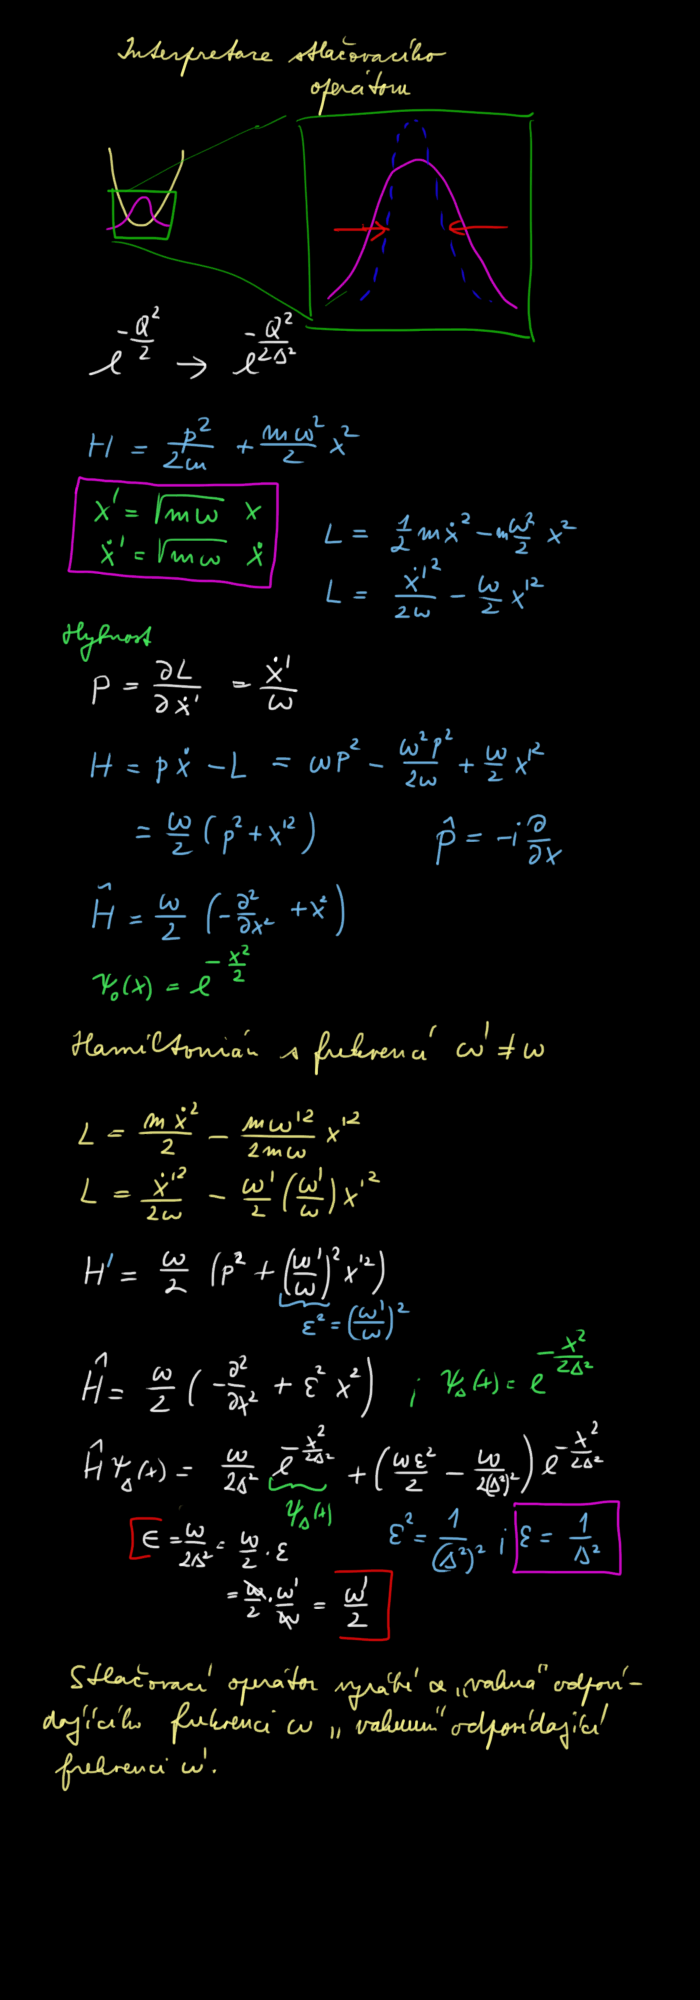 Interpretace stlačovacího
operátoru
e^{-Q²/2} → e^{-Q²/2Δ²}
H = p²/2m + mω²/2 x²
x' = √mω x
ẋ' = √mω ẋ
L = 1/2 mẋ² - mω²/2 x²
L = ẋ'²/2ω - ω/2 x'²
Hybnost
P = ∂L/∂ẋ' = ẋ'/ω
H = pẋ - L = ωP² - ω²p²/2ω + ω/2 x'²
= ω/2 (p² + x'²)
p̂ = -i ∂/∂x
Ĥ = ω/2 (-∂²/∂x² + x²)
ψ₀(x) = e^{-x²/2}
Hamiltonián s frekvencí ω' ≠ ω
L = mẋ²/2 - mω'²/2mω x'²
L = ẋ'²/2ω - ω'/2 (ω'/ω) x'²
H' = ω/2 (p² + (ω'/ω)² x'²)
ε² = (ω'/ω)²
Ĥ = ω/2 (-∂²/∂x² + ε² x²) ; ψ_Δ(x) = e^{-x²/2Δ²}
Ĥ ψ_Δ(x) = ω/2Δ² e^{-x²/2Δ²} + (ωε²/2 - ω/2(Δ²)²) e^{-x²/2Δ²}
ψ_Δ(x)
ϵ = ω/2Δ² = ω/2 · ε
ε² = 1/(Δ²)² ; ε = 1/Δ²
= ω/2 · ω'/ω = ω'/2
Stlačovací operátor vyrábí z „vakua" odpoví-
dajícího frekvenci ω „vakuum" odpovídající
frekvenci ω'.